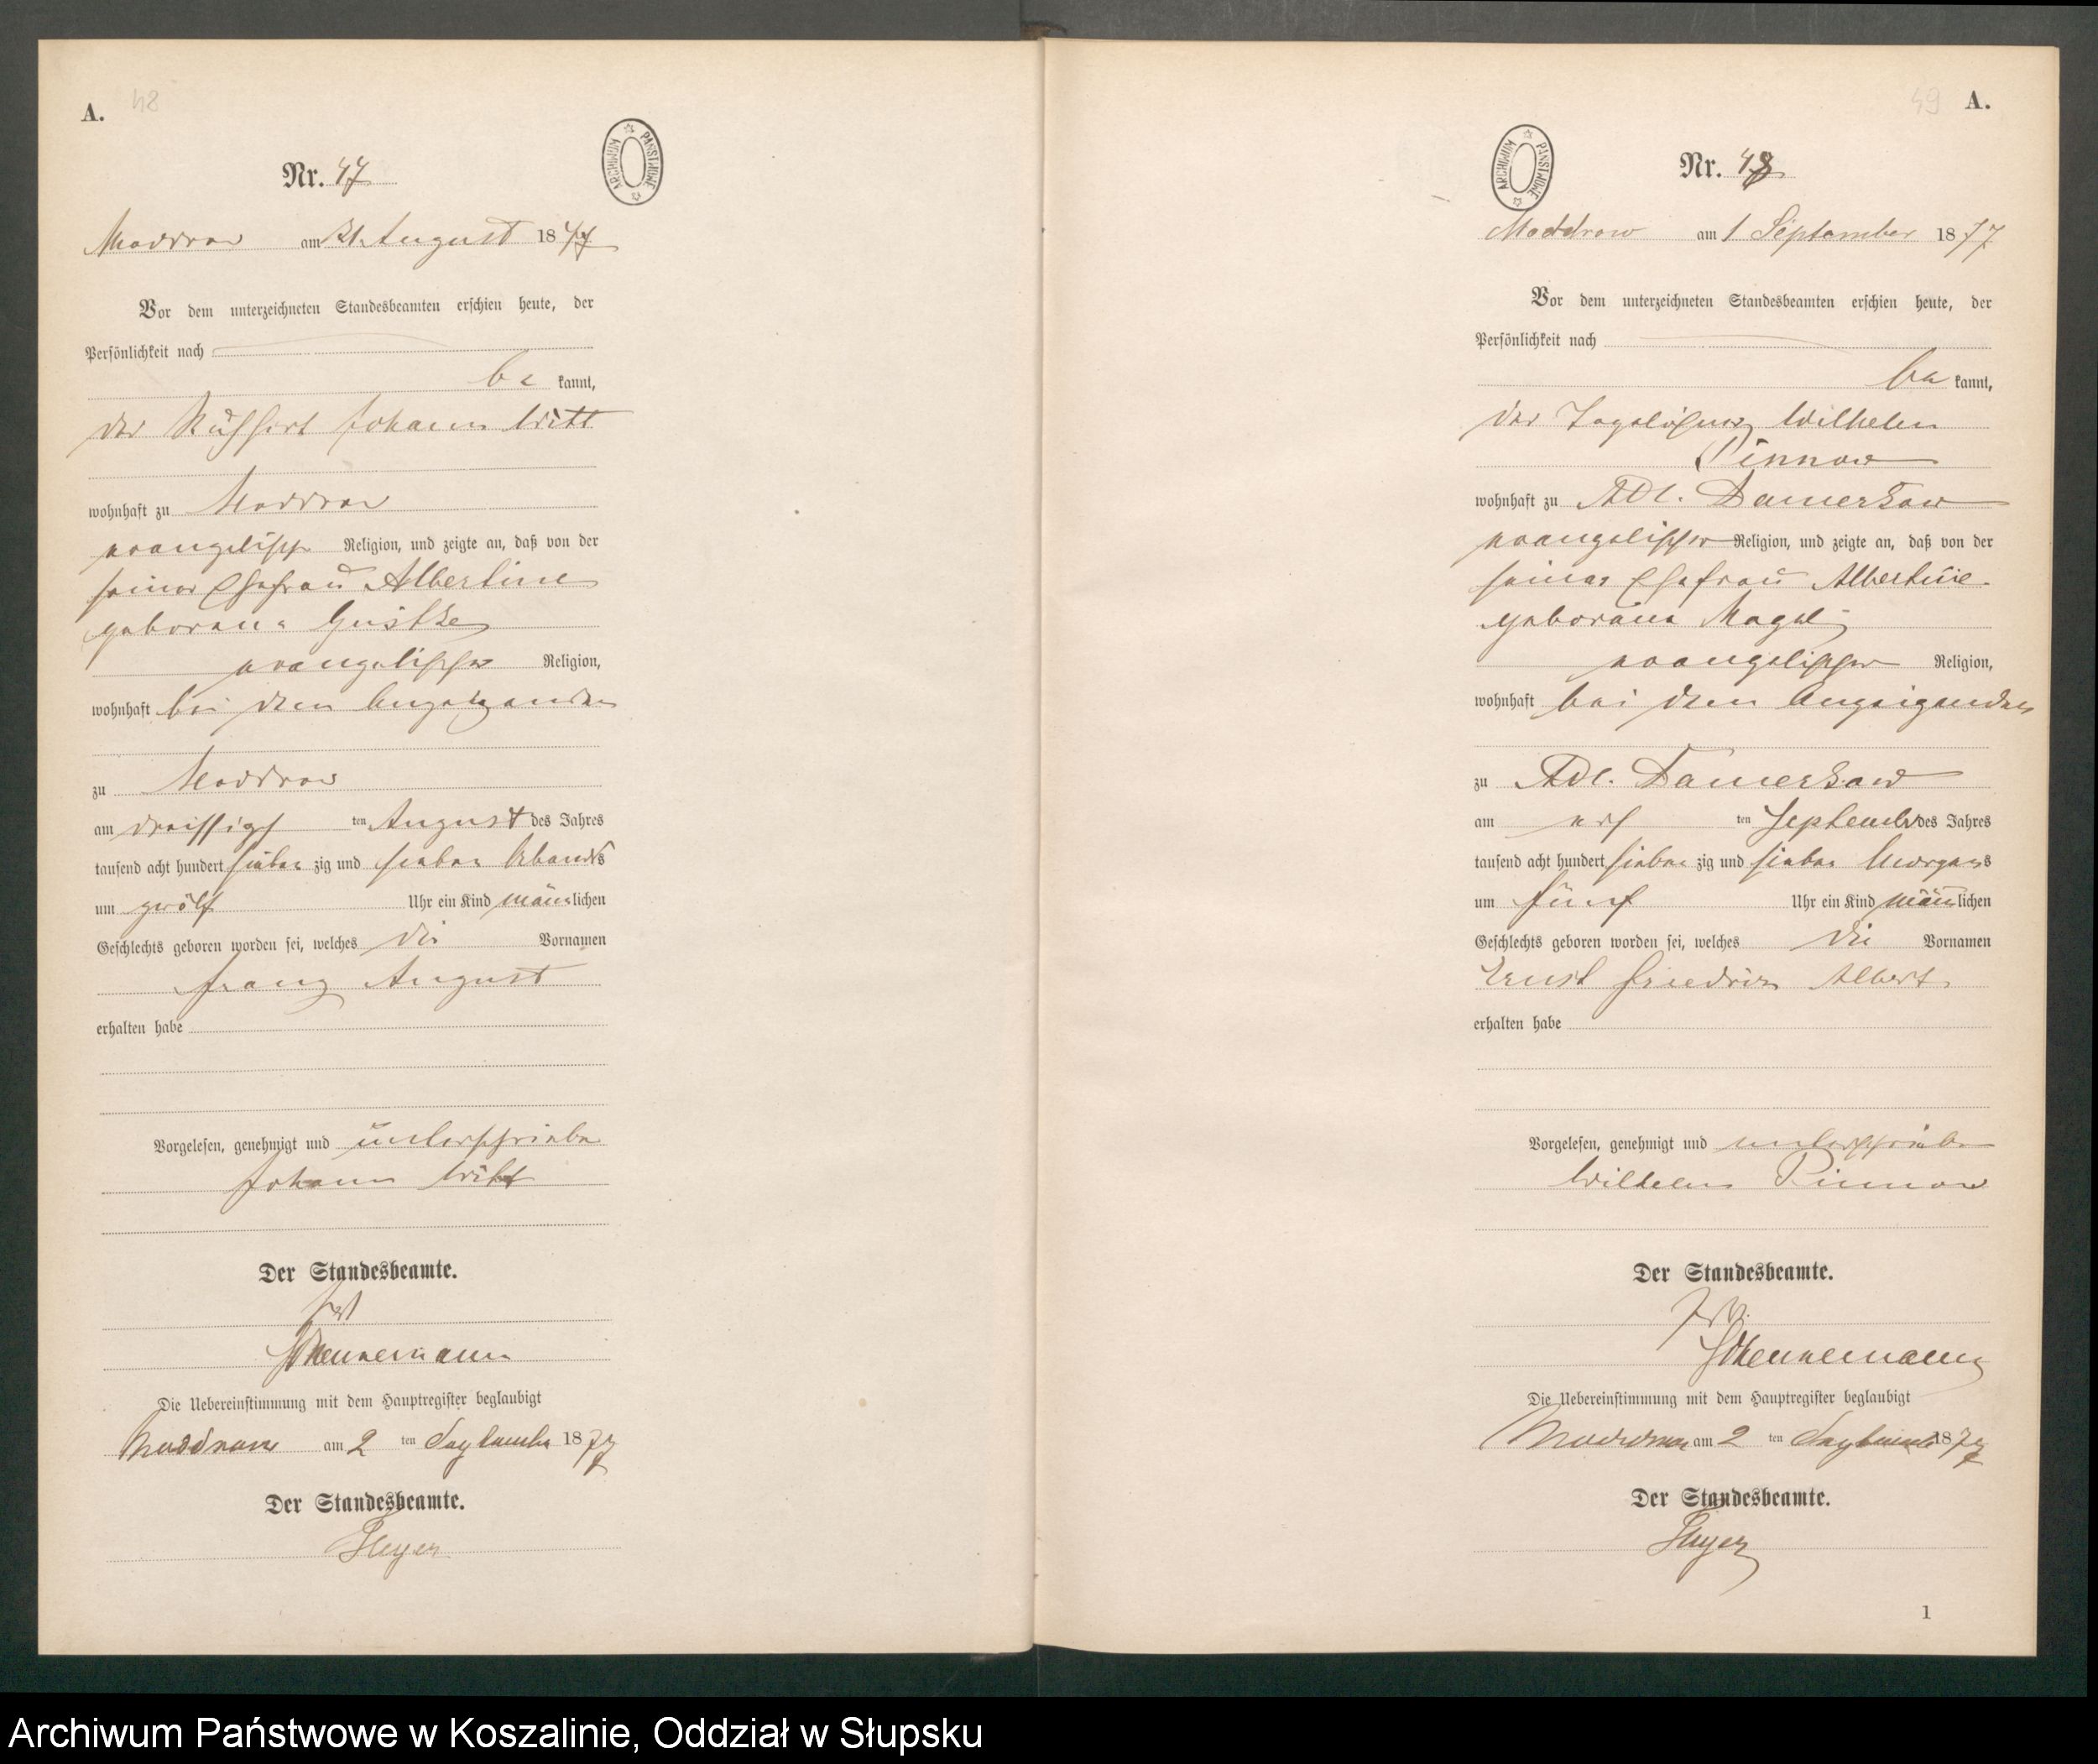 A. 48
ARCHIWUM PAŃSTWOWE
Nr. 47
Moddrow am 31. August 1877
Vor dem unterzeichneten Standesbeamten erschien heute, der
Persönlichkeit nach
be kannt,
der Johann Witt
wohnhaft zu Moddrow
evangelischer Religion, und zeigte an, daß von der
seiner Ehefrau Albertine
geborene Gustke
evangelischer Religion,
wohnhaft bei dem Anzeigenden
zu Moddrow
am dreissigst ten August des Jahres
tausend acht hundert sieben zig und sieben Abends
um zwölf Uhr ein Kind männlichen
Geschlechts geboren worden sei, welches die Vornamen
Franz August
erhalten habe
Vorgelesen, genehmigt und unterschrieben
Johann Witt
Der Standesbeamte.
Die Uebereinstimmung mit dem Hauptregister beglaubigt
Moddrow am 2 ten September 1877
Der Standesbeamte.
49 A.
ARCHIWUM PAŃSTWOWE
Nr. 48
Moddrow am 1 September 1877
Vor dem unterzeichneten Standesbeamten erschien heute, der
Persönlichkeit nach
be kannt,
der Tagelöhner Wilhelm
Pinnow
wohnhaft zu Adl. Damerkow
evangelischer Religion, und zeigte an, daß von der
seiner Ehefrau Albertine
geborene
evangelischer Religion,
wohnhaft bei dem Anzeigenden
zu Adl. Damerkow
am ers ten September des Jahres
tausend acht hundert sieben zig und sieben Morgens
um fünf Uhr ein Kind männlichen
Geschlechts geboren worden sei, welches die Vornamen
Ernst Friedrich Albert
erhalten habe
Vorgelesen, genehmigt und unterschrieben
Wilhelm Pinnow
Der Standesbeamte.
Die Uebereinstimmung mit dem Hauptregister beglaubigt
Moddrow am 2 ten September 1877
Der Standesbeamte.
1
Archiwum Państwowe w Koszalinie, Oddział w Słupsku